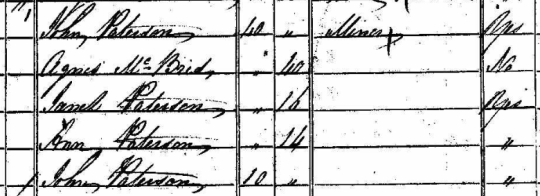 " 1 John Paterson 40 " Miner Yes
Agnes Mc Brid " 40 No
Janet Paterson " 16 Yes
Ann Paterson " 14 "
1 John Paterson 10 " "